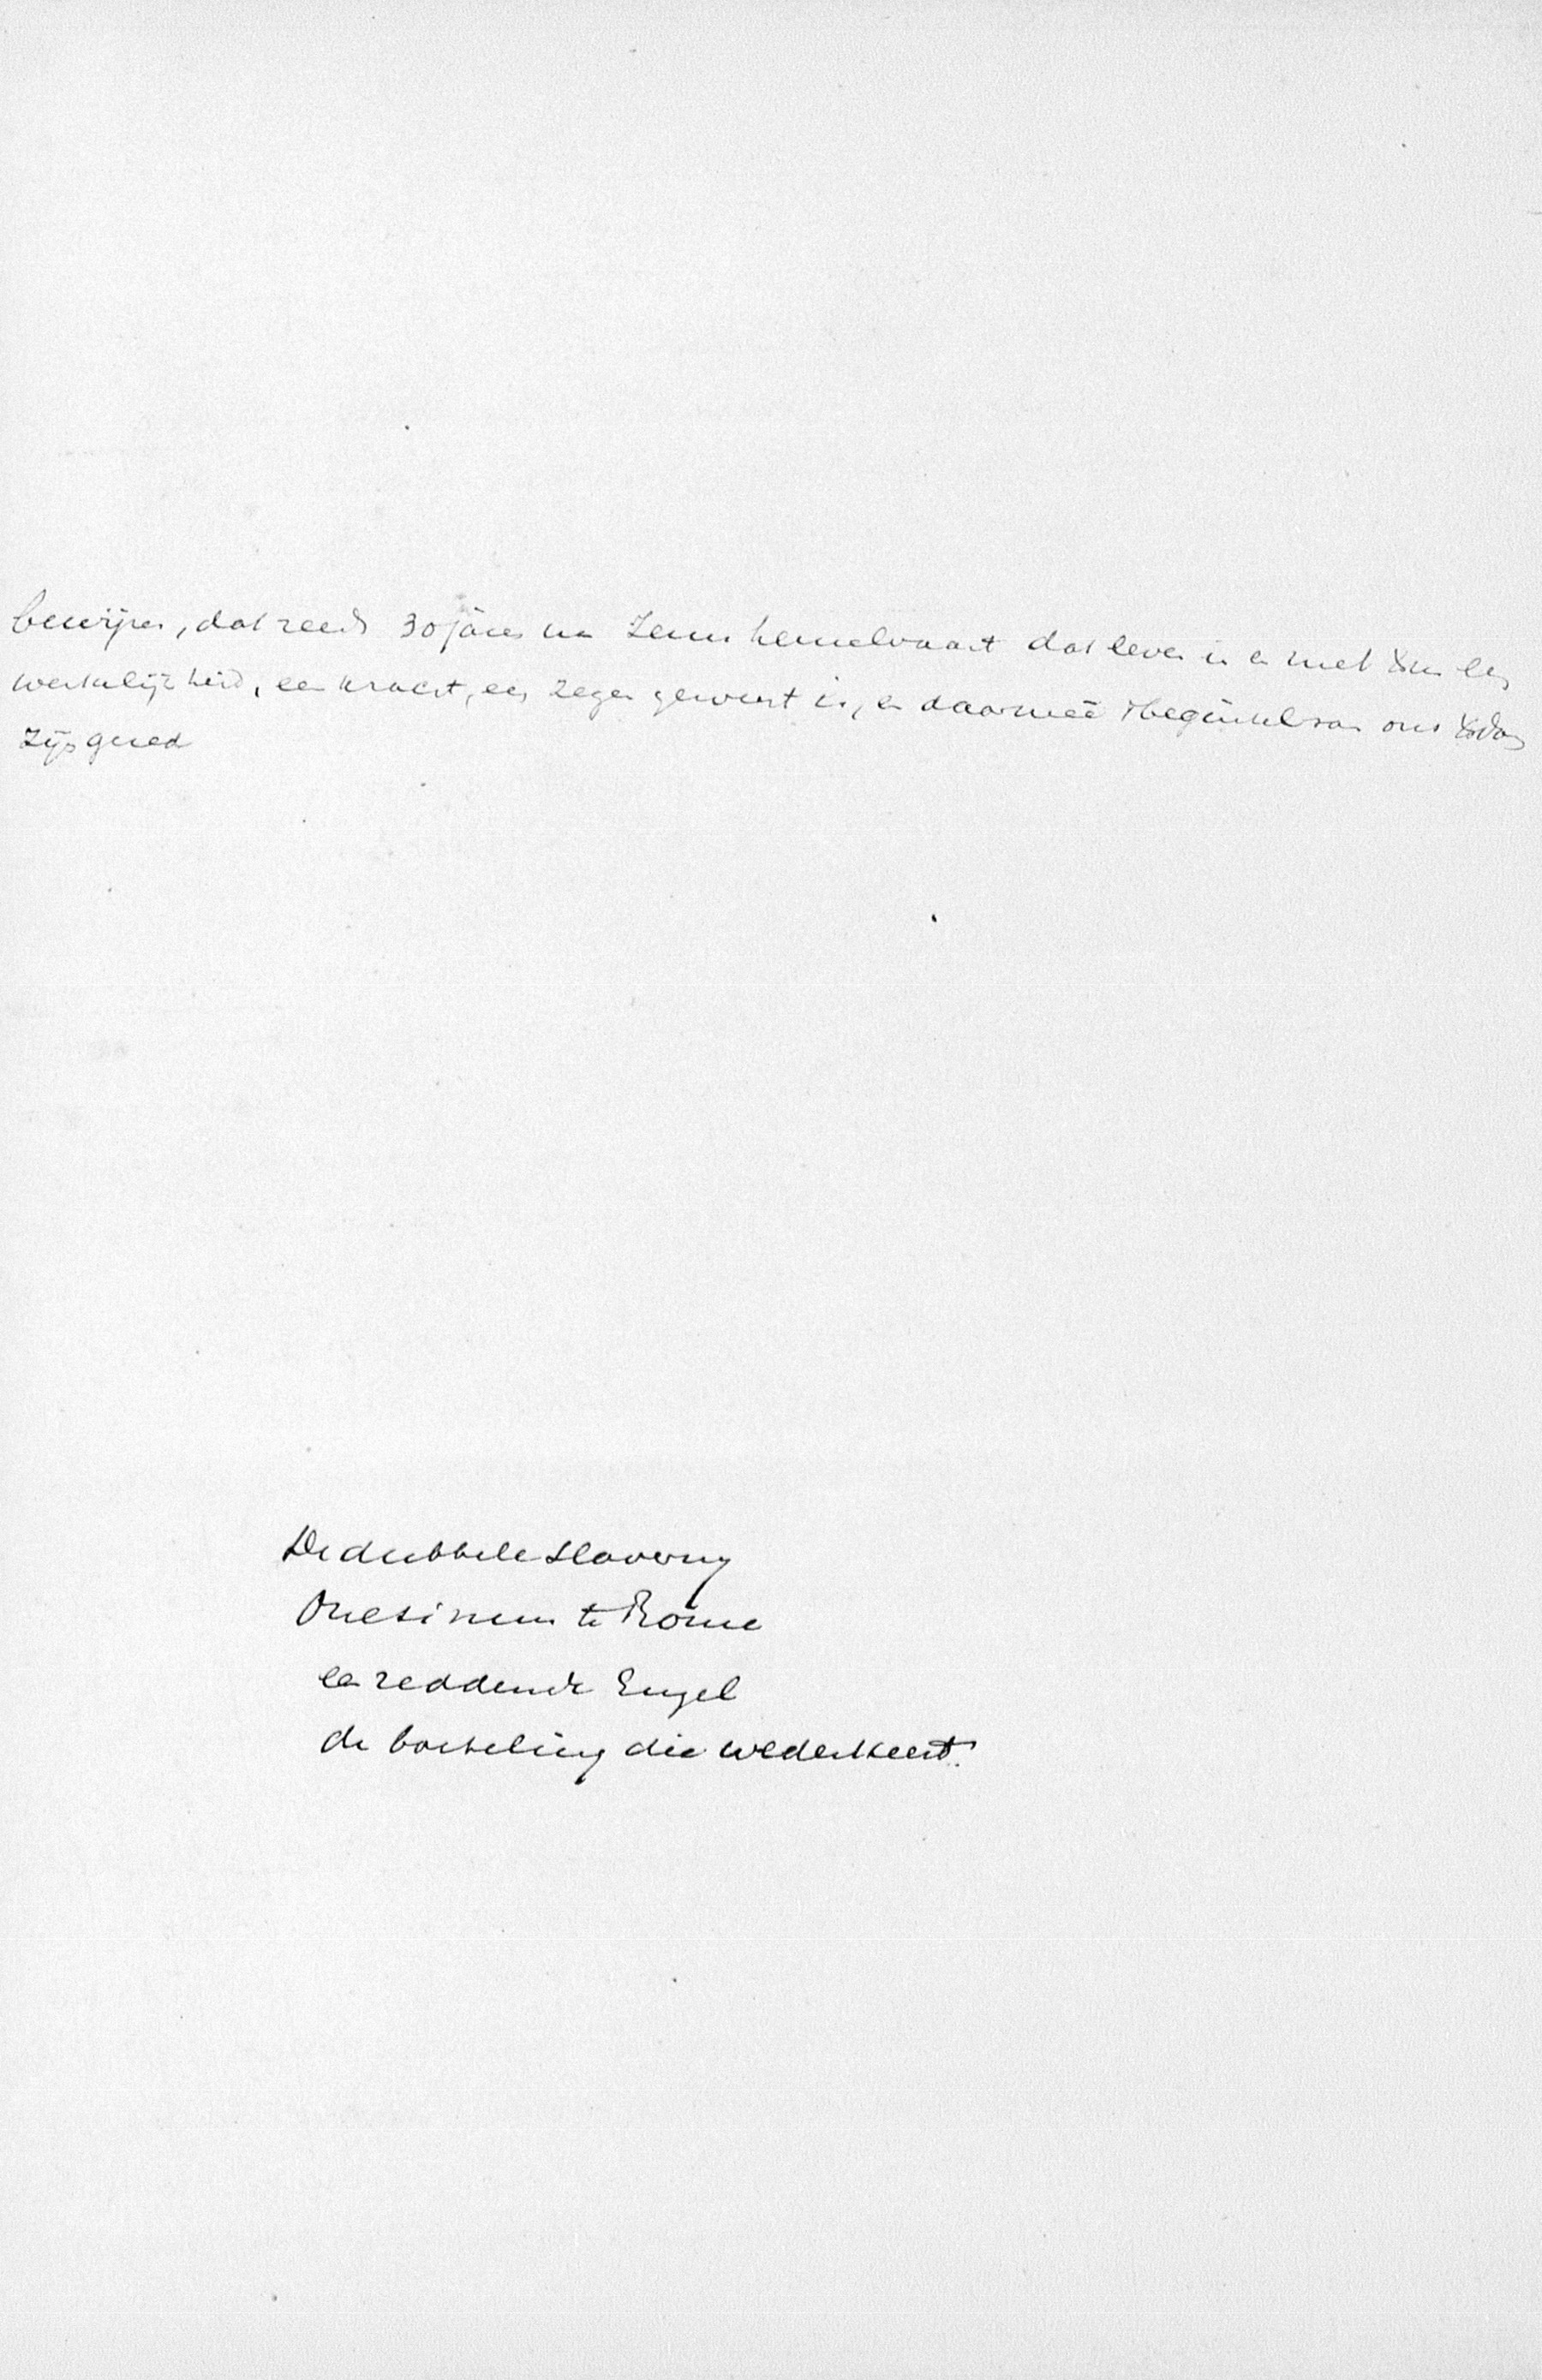 bewijzen, dat reeds 30 jaren na Jezus hemelvaart dat leven in en met Xtus een
werkelijkheid, een kracht, een zegen geweest is, en daarmeê 't beginsel van ons Xtdom
De dubbele slaverny
Onesimus te Rome
een reddende Engel
de balling die wederkeert.